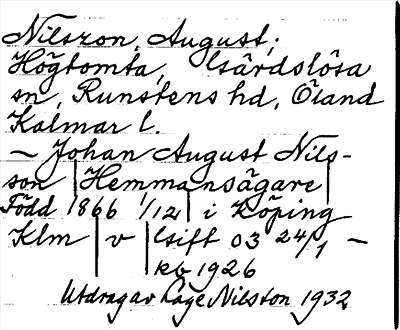 Nilszon, August,
Högtomta, Gärdslösa
sn, Runstens hd, Öland
Kalmar l.
— Johan August Nils-
son Hemmansägare
Född 1866 1/12 i Köping
Klm v Gift 03 24/1 —
kb 1926
Utdrag av Lage Nilsson 1932